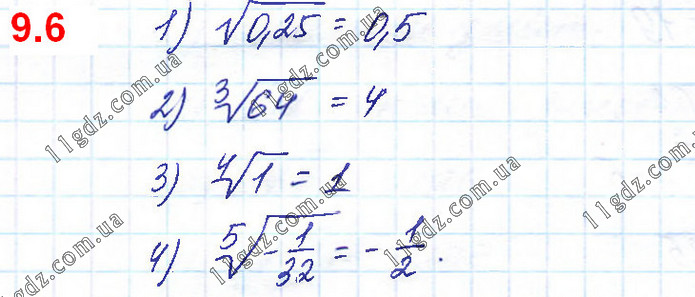 9.6
1) √0,25 = 0,5
2) ∛64 = 4
3) ∜1 = 1
4) ⁵√(-1/32) = -1/2.
11gdz.com.ua
11gdz.com.ua
11gdz.com.ua
11gdz.com.ua
11gdz.com.ua
11gdz.com.ua
11gdz.com.ua